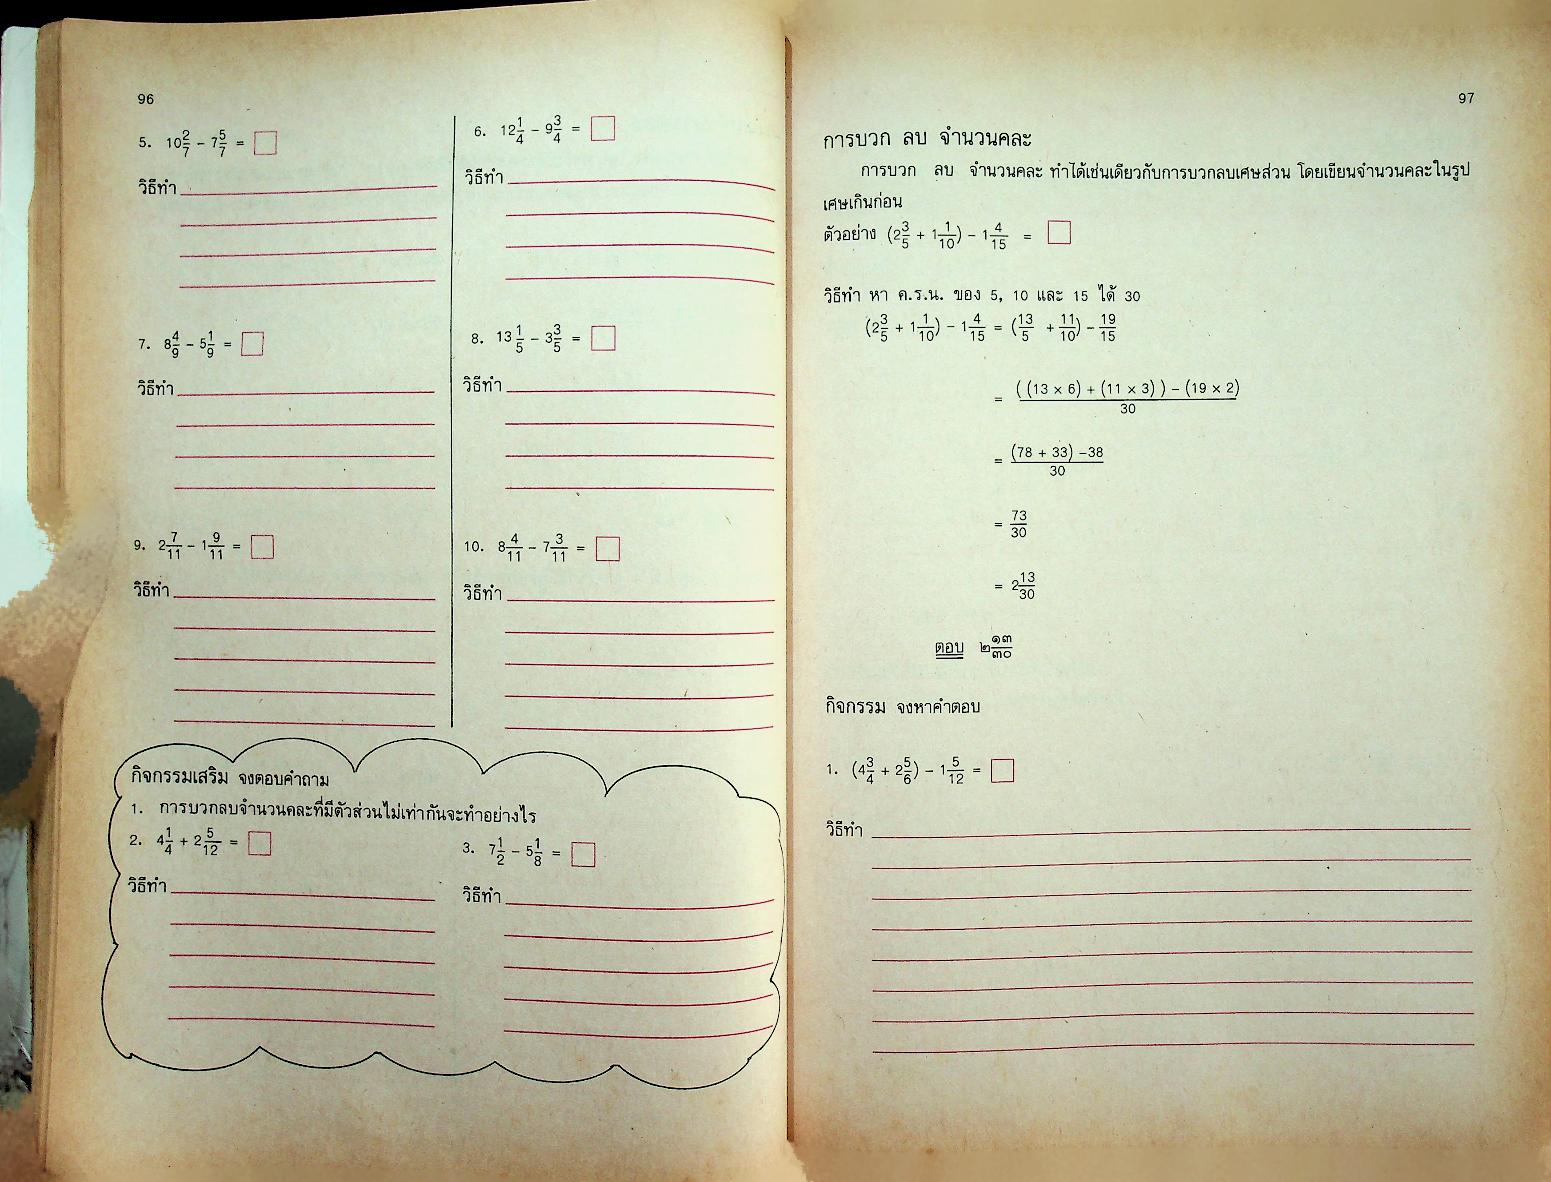 96
5. 10 2/7 – 7 5/7 = □
วิธีทำ
6. 12 1/4 – 9 3/4 = □
วิธีทำ
7. 8 4/9 – 5 1/9 = □
วิธีทำ
8. 13 1/5 – 3 3/5 = □
วิธีทำ
9. 2 7/11 – 1 9/11 = □
วิธีทำ
10. 8 4/11 – 7 3/11 = □
วิธีทำ
กิจกรรมเสริม จงตอบคำถาม
1. การบวกลบจำนวนคละที่มีตัวส่วนไม่เท่ากันจะทำอย่างไร
2. 4 1/4 + 2 5/12 = □
วิธีทำ
3. 7 1/2 – 5 1/8 = □
วิธีทำ
97
การบวก ลบ จำนวนคละ
การบวก ลบ จำนวนคละ ทำได้เช่นเดียวกับการบวกลบเศษส่วน โดยเขียนจำนวนคละในรูป
เศษเกินก่อน
ตัวอย่าง (2 3/5 + 1 1/10) – 1 4/15 = □
วิธีทำ หา ค.ร.น. ของ 5, 10 และ 15 ได้ 30
(2 3/5 + 1 1/10) – 1 4/15 = (13/5 + 11/10) – 19/15
= ( (13 × 6) + (11 × 3) ) – (19 × 2) / 30
= (78 + 33) –38 / 30
= 73/30
= 2 13/30
ตอบ ๒ ๑๓/๓๐
กิจกรรม จงหาคำตอบ
1. (4 3/4 + 2 5/6) – 1 5/12 = □
วิธีทำ